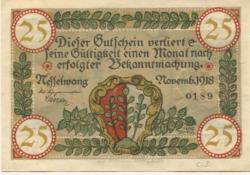 25 25
Dieser Gutschein verliert
seine Gültigkeit einen Monat nach
erfolgter Bekanntmachung.
Nesselwang Novemb.1918
0189
25 25